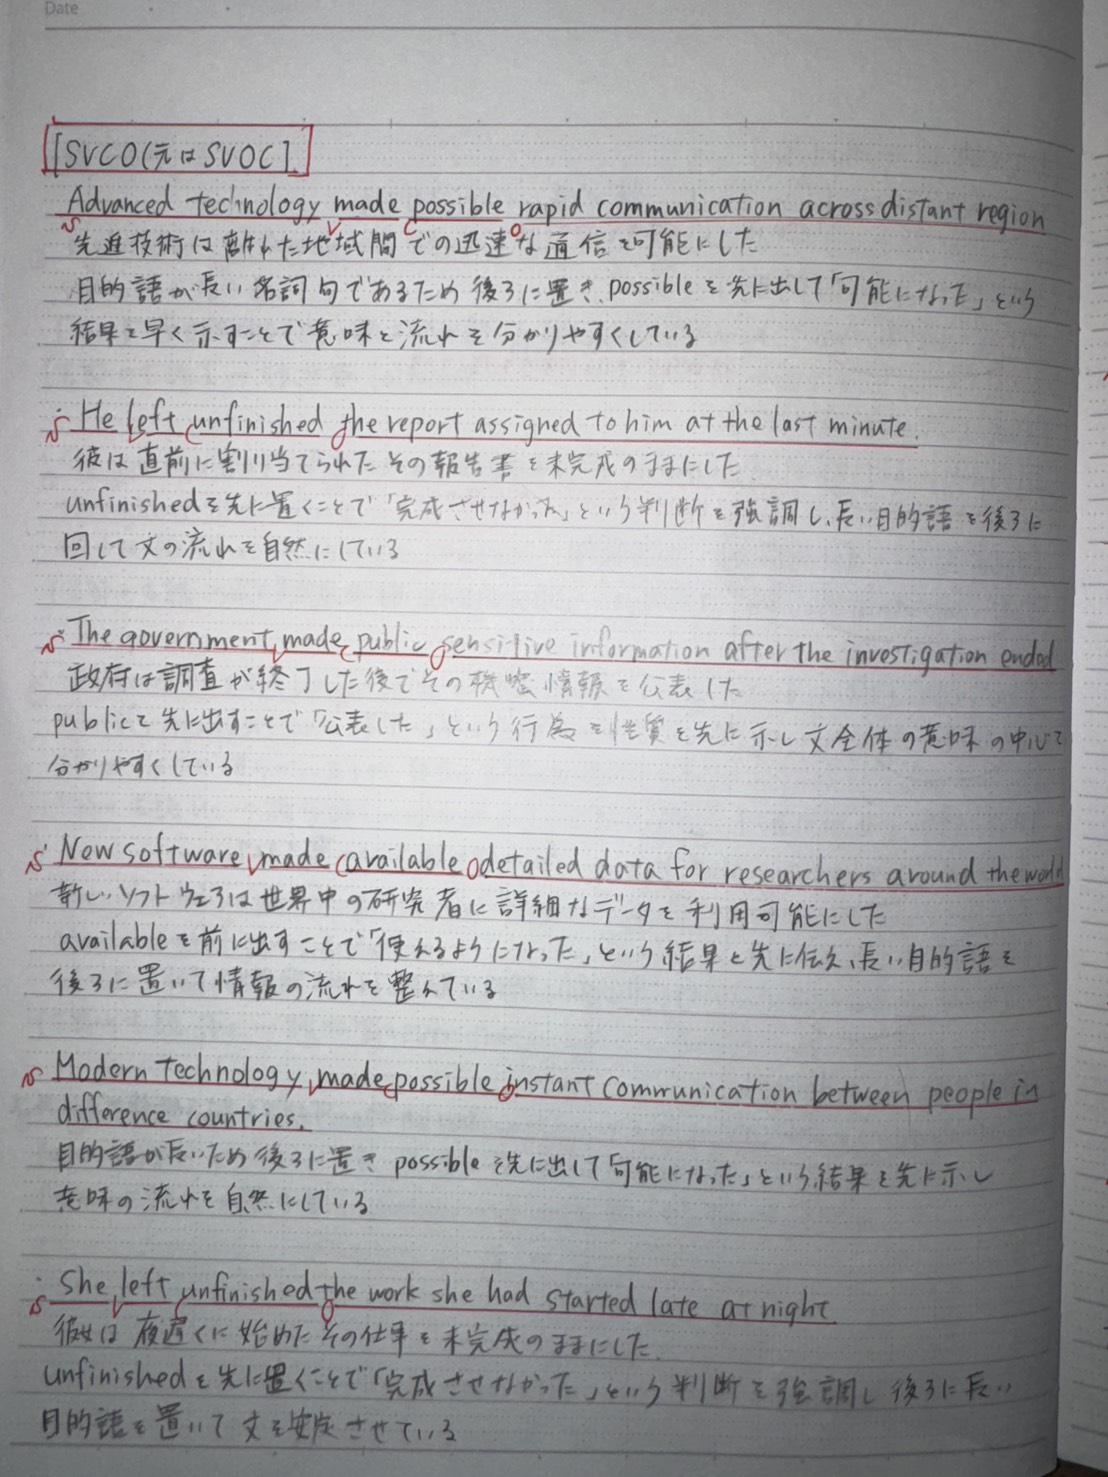 Date
[SVCO(元はSVOC].
Advanced technology made possible rapid communication across distant region
S V C O
先進技術は離れた地域間での迅速な通信を可能にした
目的語が長い名詞句であるため後ろに置き、possibleを先に出して「可能になった」という
結果を早く示すことで意味と流れを分かりやすくしている
He left unfinished the report assigned to him at the last minute.
S V C O
彼は直前に割り当てられたその報告書を未完成のままにした
unfinishedを先に置くことで「完成させなかった」という判断を強調し、長い目的語を後ろに
回して文の流れを自然にしている
The government made public sensitive information after the investigation ended
S V C O
政府は調査が終了した後でその機密情報を公表した
publicを先に出すことで「公表した」という行為を性質を先に示し文全体の意味の中心を
分かりやすくしている
New software made available detailed data for researchers around the world
S V C O
新しいソフトウェアは世界中の研究者に詳細なデータを利用可能にした
availableを前に出すことで「使えるようになった」という結果を先に伝え、長い目的語を
後ろに置いて情報の流れを整えている
Modern technology made possible instant communication between people in
S V C O
difference countries.
目的語が長いため後ろに置き possibleを先に出して「可能になった」という結果を先に示し
意味の流れを自然にしている
She left unfinished the work she had started late at night.
S V C O
彼女は夜遅くに始めたその仕事を未完成のままにした.
unfinishedを先に置くことで「完成させなかった」という判断を強調し後ろに長い
目的語を置いて文を安定させている